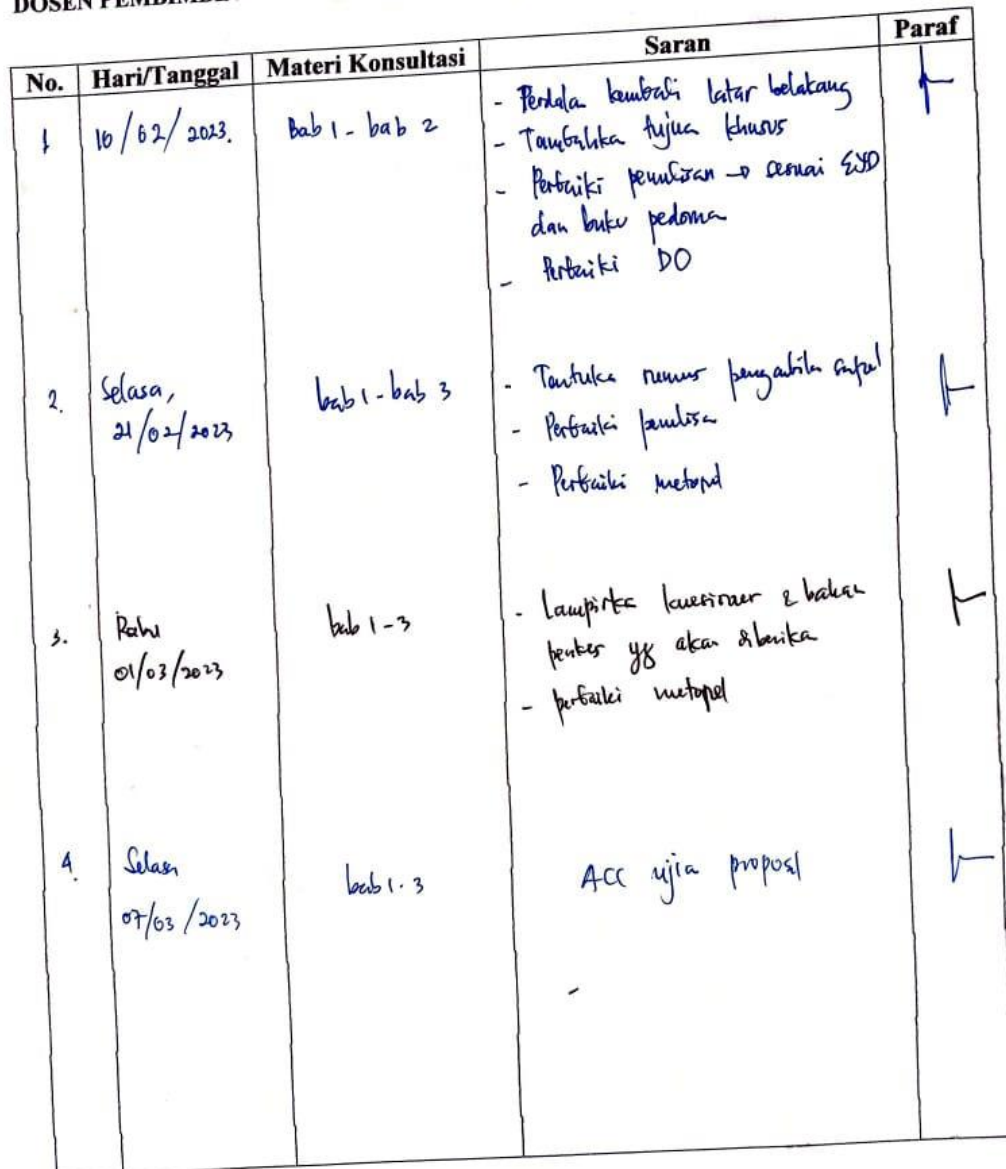 DOSEN
No. Hari/Tanggal Materi Konsultasi Saran Paraf
1 10/02/2023. Bab 1 - bab 2 - Perdala kembali latar belakang
- Tambahka tujua khusus
- Perbaiki penulisan → sesuai EYD
dan buku pedoma
- Perbaiki DO
2. Selasa, bab 1 - bab 3 - Tentuka rumus pengambila sampel
21/02/2023 - Perbaiki penulisa
- Perbaiki metopel
3. Rabu bab 1-3 - Lampirka kuesioner & bahan
01/03/2023 penkes yg akan diberika
- perbaiki metopel
4. Selasa bab 1-3 ACC ujia proposal
07/03/2023
-